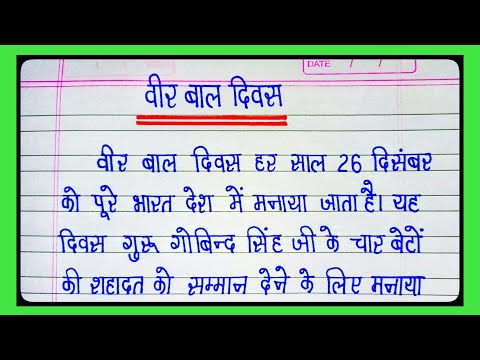 DATE / /
वीर बाल दिवस
वीर बाल दिवस हर साल 26 दिसंबर
को पूरे भारत देश में मनाया जाता है। यह
दिवस गुरू गोबिन्द सिंह जी के चार बेटों
की शहादत को सम्मान देने के लिए मनाया